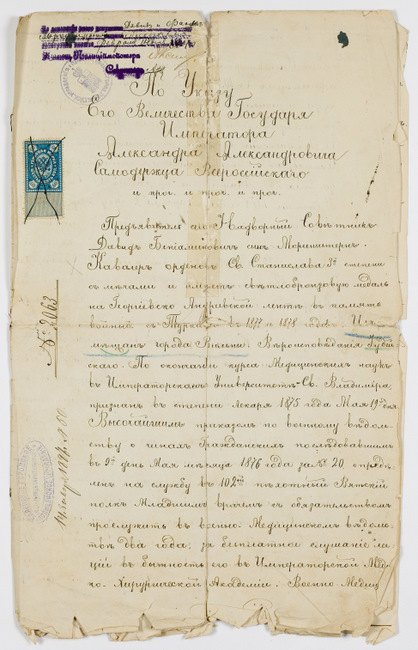 По Указу
Его Величества Государя
Императора
Александра Александровича
Самодержца Всероссійскаго
и проч. и проч. и проч.
Предъявитель сего Надворный Совѣтникъ
Давидъ Беніаминовичъ сынъ
Кавалеръ орденовъ Св. Станислава 3й степени
съ мечами и имѣетъ свѣтлобронзовую медаль
на Георгіевско Андреевской лентѣ въ память
войны съ Турками въ 1877 и 1878 годахъ. Изъ
мѣщанъ города Вильны. Вѣроисповѣданія Іудей
скаго. По окончаніи курса Медицинскихъ наукъ
въ Императорскомъ Университетѣ Св. Владиміра,
признанъ въ степени лекаря 1875 года Мая 19 дня.
Высочайшимъ приказомъ по военному вѣдом
ству о чинахъ Гражданскихъ послѣдовавшимъ
въ 9й день Мая мѣсяца 1876 года за № 20, опредѣ
ленъ на службу въ 102й пѣхотный Вятскій
полкъ Младшимъ врачемъ съ обязательствомъ
прослужить въ военно-Медицинскомъ вѣдом
ствѣ два года; за безплатное слушаніе лек
цій въ бытность его въ Императорской Меди
ко-Хирургической Академіи. Военно-Медиц
№ 3063